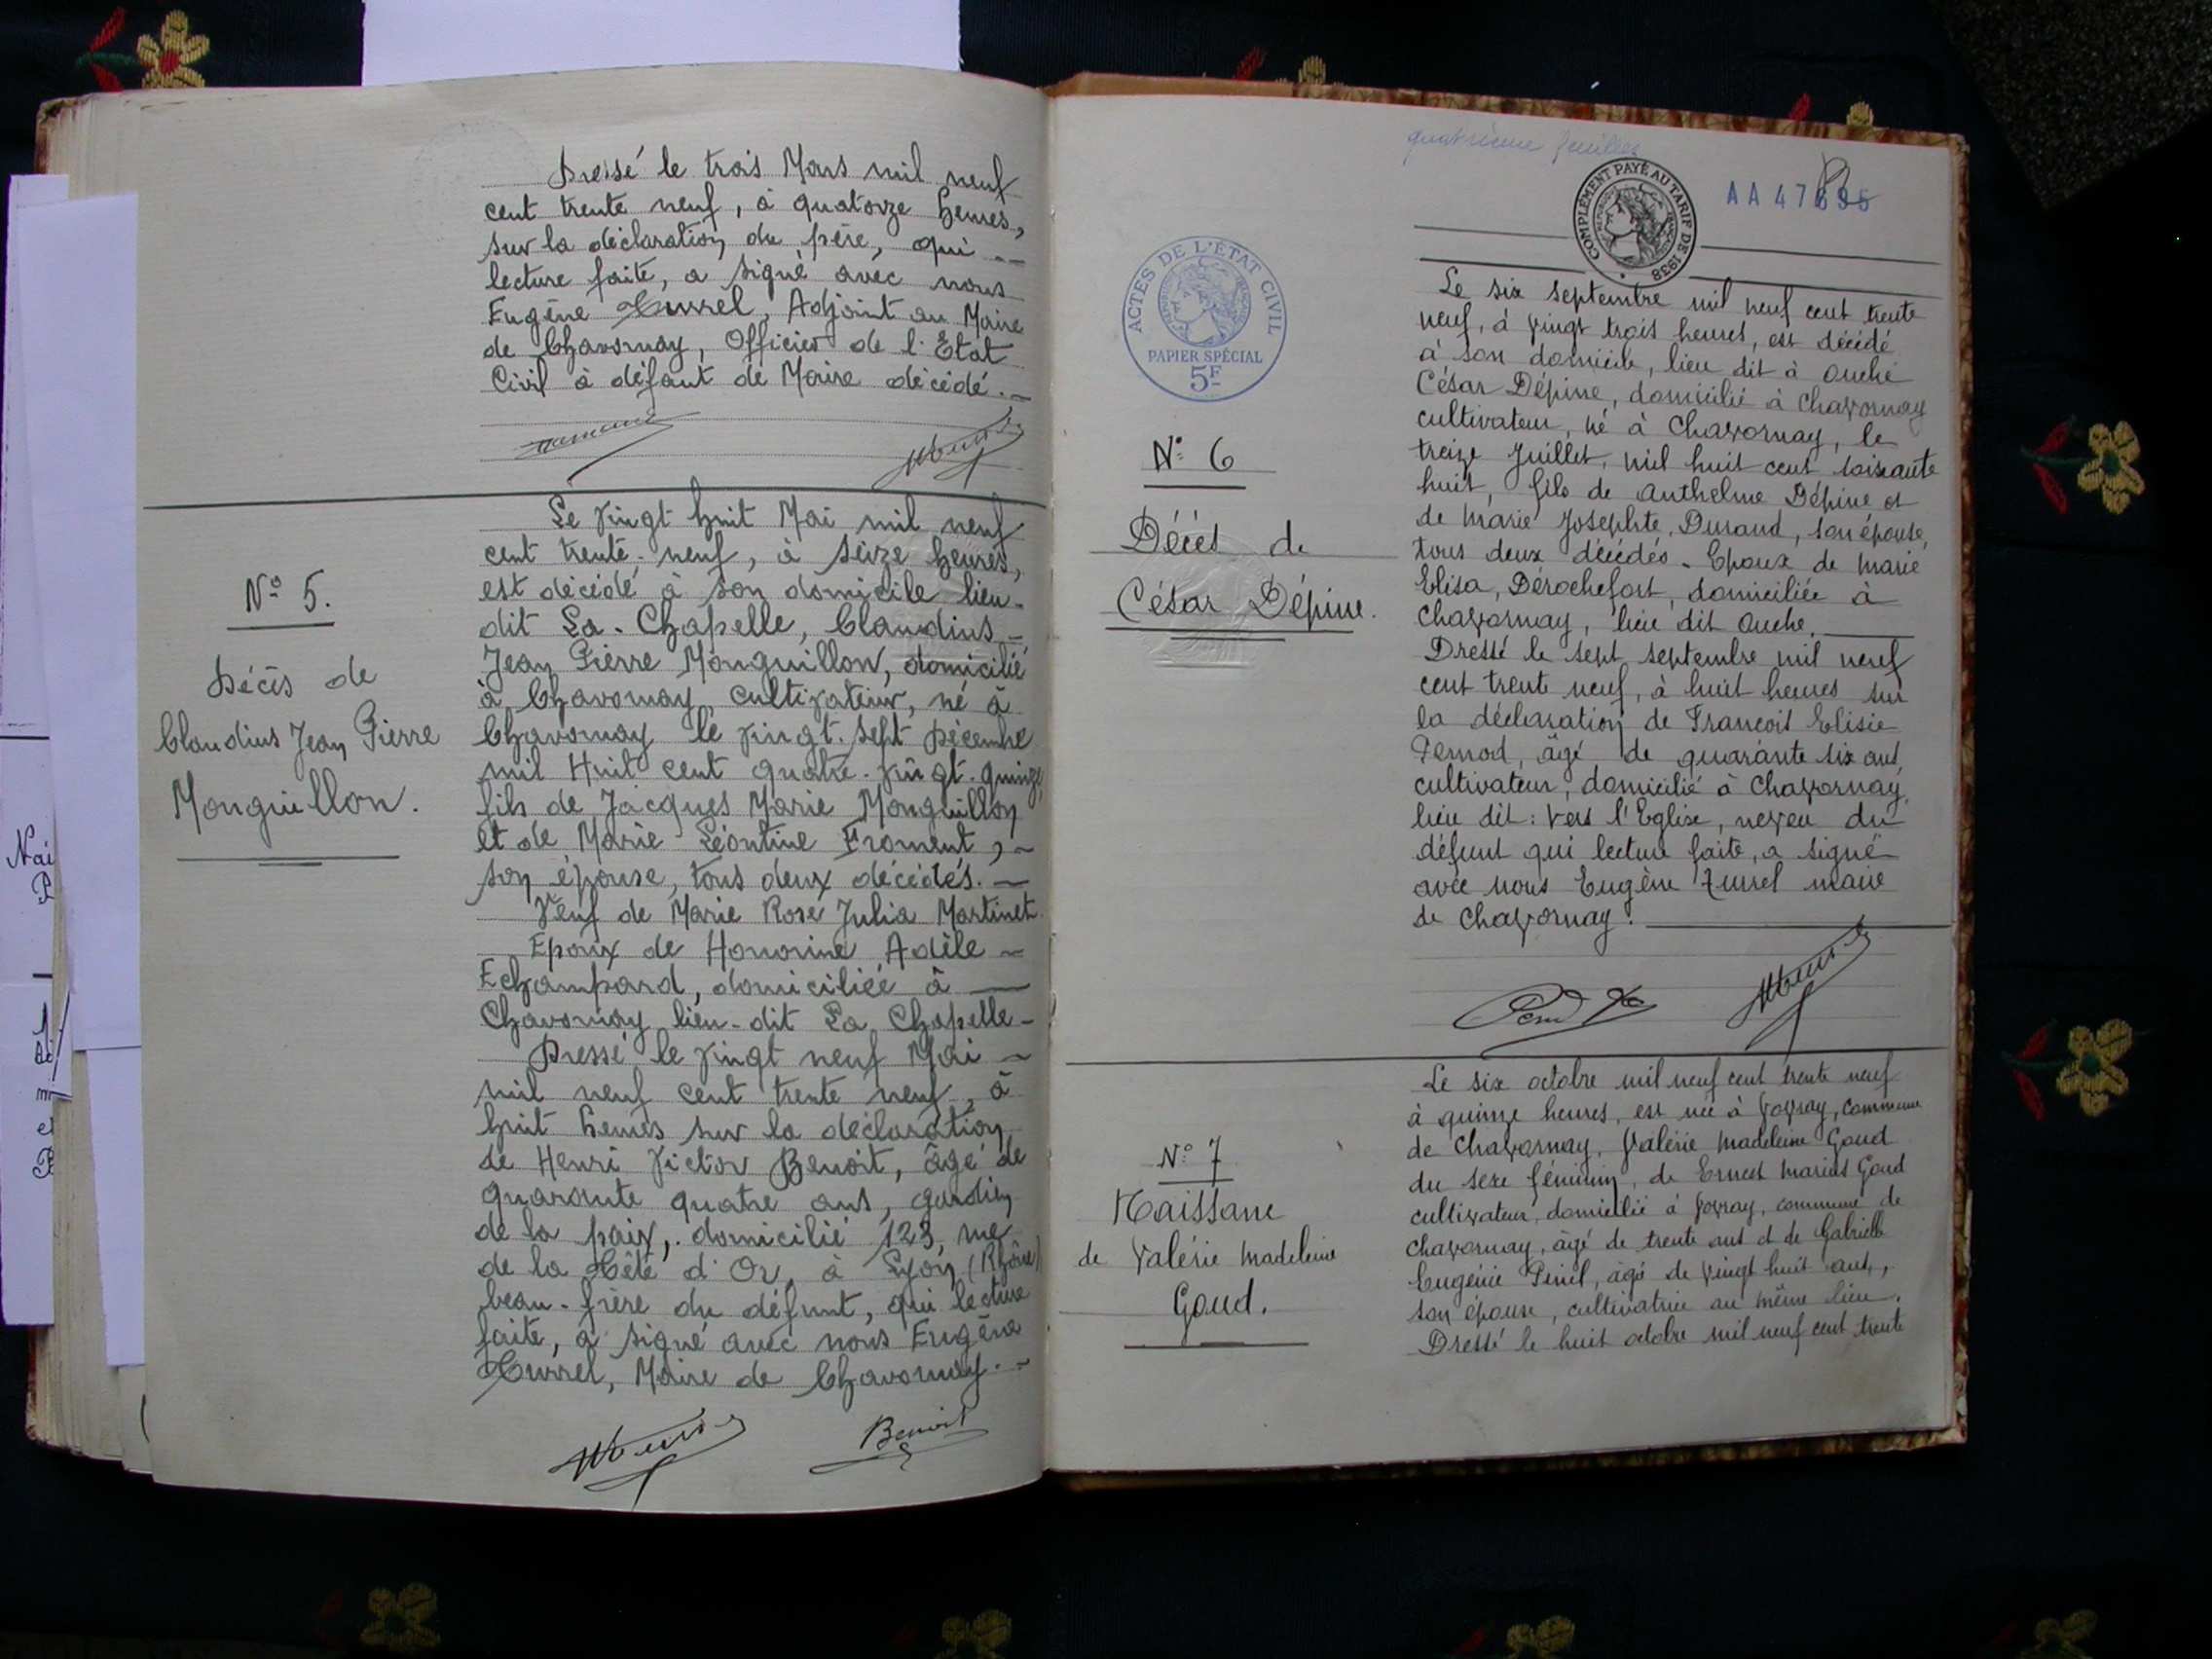 Dressé le trois Mars mil neuf
cent trente neuf, à quatorze heures,
sur la déclaration du père, qui
lecture faite, a signé avec nous
Eugène Zurrel, Adjoint au Maire
de Chavornay, Officier de l'Etat
Civil à défaut de Maire décédé.
N° 5.
Décès de
Claudius Jean Pierre
Monguillon.
Le vingt huit Mai mil neuf
cent trente neuf, à seize heures,
est décédé à son domicile lieu-
dit La Chapelle, Claudius
Jean Pierre Monguillon, domicilié
à Chavornay cultivateur, né à
Chavornay le vingt-sept Décembre
mil Huit cent quatre-vingt-quinze,
fils de Jacques Marie Monguillon
et de Marie Léontine Froment,
son épouse, tous deux décédés.
Veuf de Marie Rose Julia Martinet
Epoux de Honorine Adèle
Echampard, domiciliée à
Chavornay lieu-dit La Chapelle
Dressé le vingt neuf Mai
mil neuf cent trente neuf, à
huit heures sur la déclaration
de Henri Victor Benoit, âgé de
quarante quatre ans, gardien
de la paix, domicilié 123, rue
de la Tête d'Or, à Lyon (Rhône)
beau-frère du défunt, qui lecture
faite, a signé avec nous Eugène
Zurrel, Maire de Chavornay.
Benoit
quatrième feuillet
COMPLÉMENT PAYÉ AU TARIF DE 1938
AA 47
ACTES DE L'ÉTAT CIVIL
PAPIER SPÉCIAL
5F
N° 6
Décès de
César Dépine.
Le six septembre mil neuf cent trente
neuf, à vingt trois heures, est décédé
à son domicile, lieu dit à Ouche
César Dépine, domicilié à Chavornay
cultivateur, né à Chavornay, le
treize Juillet, mil huit cent soixante
huit, fils de Anthelme Dépine et
de Marie Josephte Durand, son épouse,
tous deux décédés. Epoux de Marie
Elisa, Dérochefort, domiciliée à
Chavornay, lieu dit Ouche.
Dressé le sept septembre mil neuf
cent trente neuf, à huit heures sur
la déclaration de François Elisie
Pernod, âgé de quarante six ans,
cultivateur, domicilié à Chavornay,
lieu dit: Vers l'Eglise, neveu du
défunt qui lecture faite, a signé
avec nous Eugène Zurrel maire
de Chavornay.
N° 7
Naissane
de Valérie Madeleine
Goud.
Le six octobre mil neuf cent trente neuf
à quinze heures, est née à Vovray, commune
de Chavornay, Valérie Madeleine Goud
du sexe féminin, de Ernest Marius Goud
cultivateur, domicilié à Vovray, commune de
Chavornay, âgé de trente ans et de Gabrielle
Eugénie Pinil, âgé de vingt huit ans,
son épouse, cultivatrice au même lieu.
Dressé le huit octobre mil neuf cent trente